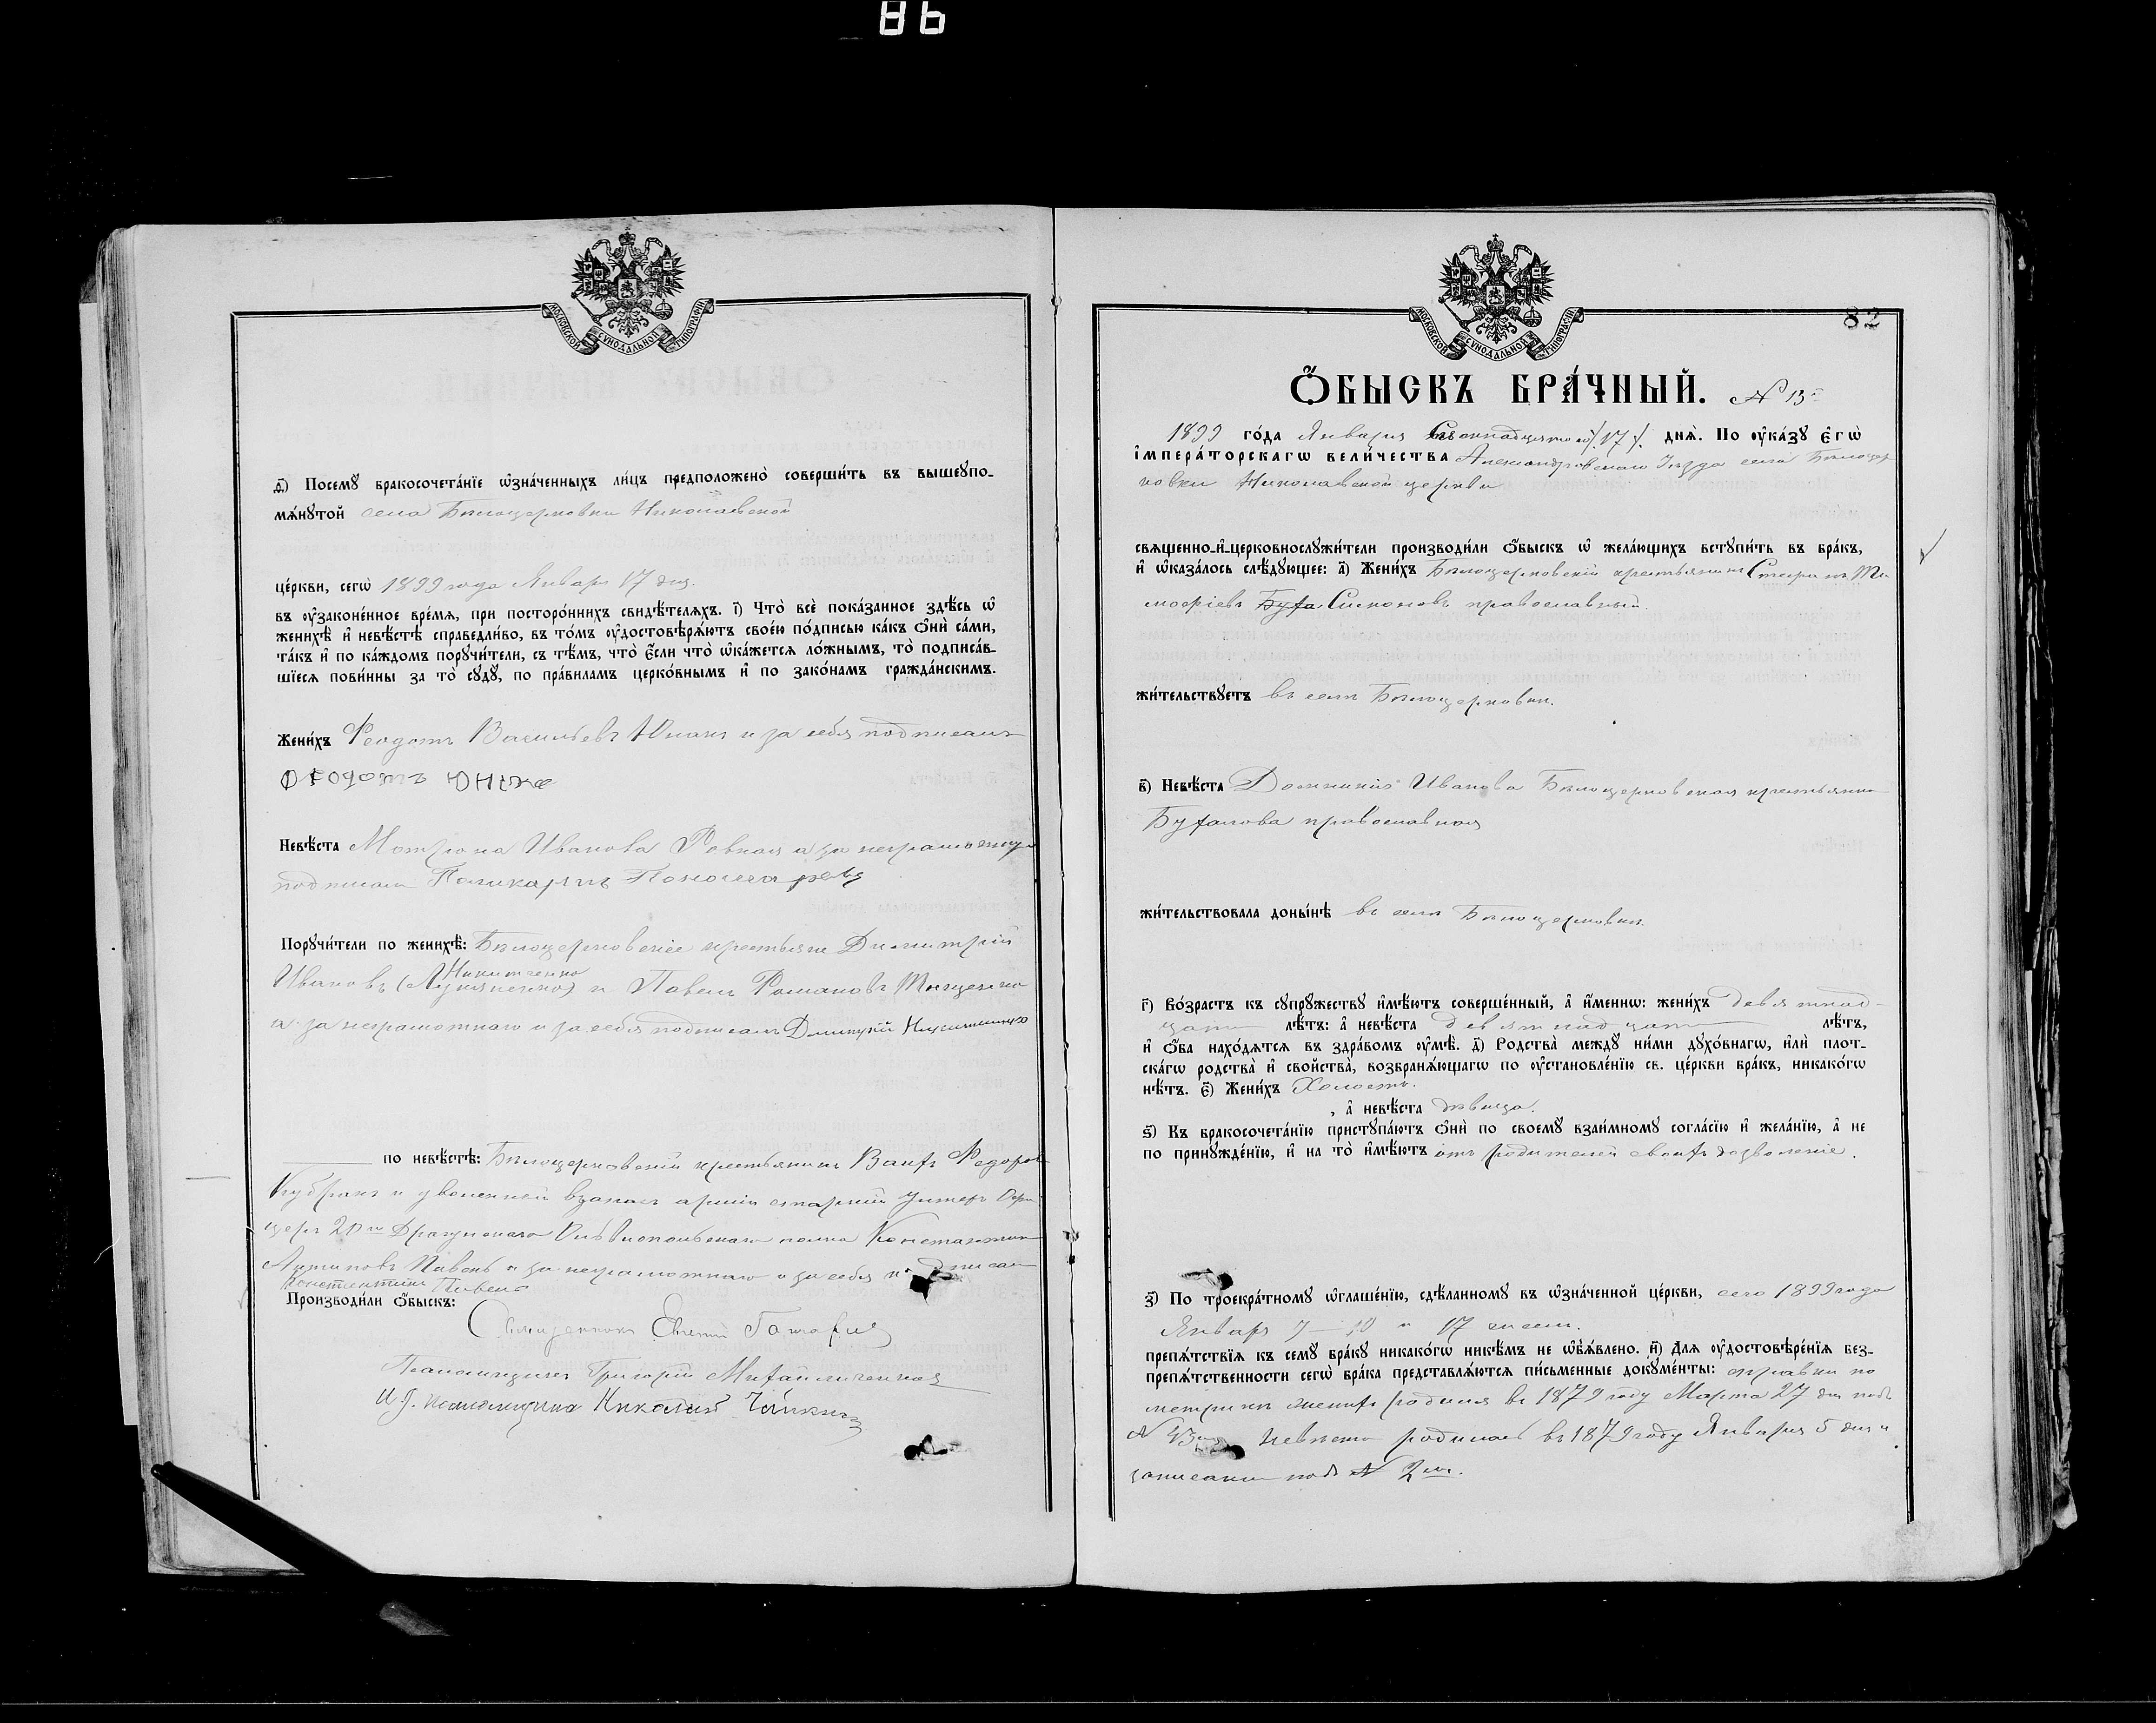 86
МОСКОВСКОЙ СѴНОДАЛЬНОЙ ТИПОГРАФІИ
д҃) Посемꙋ̀ бракосочета́нїе ѡ҆зна́ченныхъ ли́цъ предположено̀ соверши́ть въ вышеꙋпо-
мѧ́нꙋтой села Бѣлоцерковки Николаевской
це́ркви, сегѡ̀ 1899 года Января 17 дня.
въ ᲂу҆зако́ненное вре́мѧ, при посторо́ннихъ свидѣ́телѧхъ. і҃) Что̀ всѐ пока́занное здѣ́сь ѡ҆
женихѣ̀ и҆ невѣ́стѣ справедли́во, въ то́мъ ᲂу҆достовѣрѧ́ютъ свое́ю по́дписью ка́къ ѻ҆нѝ са́ми,
та́къ и҆ по ка́ждомъ порꙋчи́тели, съ тѣ́мъ, что̀ є҆́сли что̀ ѡ҆ка́жетсѧ ло́жнымъ, то̀ подписа́в-
шїесѧ пови́нны за то̀ сꙋдꙋ̀, по пра́виламъ церко́внымъ и҆ по зако́намъ гражда́нскимъ.
Жени́хъ Феодотъ Васильевъ Юнакъ и за себя подписалъ
Феодотъ
Невѣ́ста Мотрона Иванова Ровная а за неграмотную
подписалъ Поликарпъ Пономаревъ
Порꙋчи́тели по женихѣ̀: Бѣлоцерковскіе крестьяне Димитрій
Никитченко
Ивановъ и Павелъ Романовъ
а за неграмотнаго и за себя подписалъ Дмитрій
по невѣ́стѣ: Бѣлоцерковскій крестьянинъ Федоровъ
и уволенный взапасъ арміи старшій унтеръ Офи-
церъ 20го Драгунскаго полка Константинъ
Пивень а за неграмотнаго и за себя подписалъ
Константинъ Пивень
Производи́ли ѻ҆́быскъ:
Священникъ
Псаломщикъ Григорій
И. д. псаломщика Николай
МОСКОВСКОЙ СѴНОДАЛЬНОЙ ТИПОГРАФІИ
82
Ѻ҆́БЫСКЪ БРА́ЧНЫЙ. № 13й
1899 го́да Января Семнадцатаго /17/. днѧ̀. По ᲂу҆ка́зꙋ є҆гѡ̀
і҆мпера́торскагѡ вели́чества Александровскаго Уѣзда села Бѣлоцер-
ковки Николаевской церкви
свѧщенно-и҆-церковнослꙋжи́тели производи́ли ѻ҆́быскъ ѡ҆ жела́ющихъ встꙋпи́ть въ бра́къ,
и҆ ѡ҆каза́лось слѣ́дꙋющее: а҃) Жени́хъ Бѣлоцерковскій крестьянинъ Ти-
мофіевъ Симоновъ православный.
жи́тельствꙋетъ въ селѣ Бѣлоцерковки.
в҃) Невѣ́ста Домникія Иванова Бѣлоцерковская крестьянка
православная
жи́тельствовала доны́нѣ въ селѣ Бѣлоцерковки.
г҃) Во́зрастъ къ сꙋпрꙋ́жествꙋ и҆мѣ́ютъ соверше́нный, а҆ и҆́меннѡ: жени́хъ девятнад-
цати лѣ́тъ: а҆ невѣ́ста девятнадцати лѣ́тъ,
и҆ ѻ҆́ба нахо́дѧтсѧ въ здра́вомъ ᲂу҆мѣ̀. д҃) Родства̀ междꙋ̀ ни́ми дꙋхо́внагѡ, и҆лѝ плот-
ска́гѡ родства̀ и҆ сво́йства, возбранѧ́ющагѡ по ᲂу҆становле́нїю св. це́ркви бра́къ, никако́гѡ
нѣ́тъ. є҃) Жени́хъ Холостъ.
, а҆ невѣ́ста дѣвица.
ѕ҃) Къ бракосочета́нїю пристꙋпа́ютъ ѻ҆нѝ по своемꙋ̀ взаи́мномꙋ согла́сїю и҆ жела́нїю, а҆ не
по принꙋжде́нїю, и҆ на то̀ и҆мѣ́ютъ отъ родителей своихъ дозволеніе.
з҃) По троекра́тномꙋ ѡ҆глаше́нїю, сдѣ́ланномꙋ въ ѡ҆зна́ченной це́ркви, сего 1899 года
Января 7 - 10 и 17 чиселъ.
препѧ́тствїѧ къ семꙋ̀ бра́кꙋ никако́гѡ никѣ́мъ не ѡ҆б̾ѧ́влено. и҃) Длѧ ᲂу҆достовѣре́нїѧ без-
препѧ́тственности сегѡ̀ бра́ка представлѧ́ютсѧ пи́сьменные докꙋме́нты: справки по
метрикѣ женихъ родился въ 1879 году Марта 27 дня подъ
№ 43 невѣста родилась въ 1879 году Января 5 дня и
записана подъ № 2мъ.